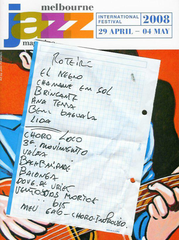 melbourne
jazz
INTERNATIONAL
FESTIVAL
2008
29 APRIL - 04 MAY
ROTEIRO
EL NEGRO
CHAMAME EM SOL
BRINCANTE
ANA TERRA
BEM BAGUALA
LIDA
CHORO LOCO
3º MOVIMENTO
VALSA
BACHBARIDADE
BAIONGA
DOVE DE URIES
VENTOS DOS MORTOS
BIS
MEU CARO